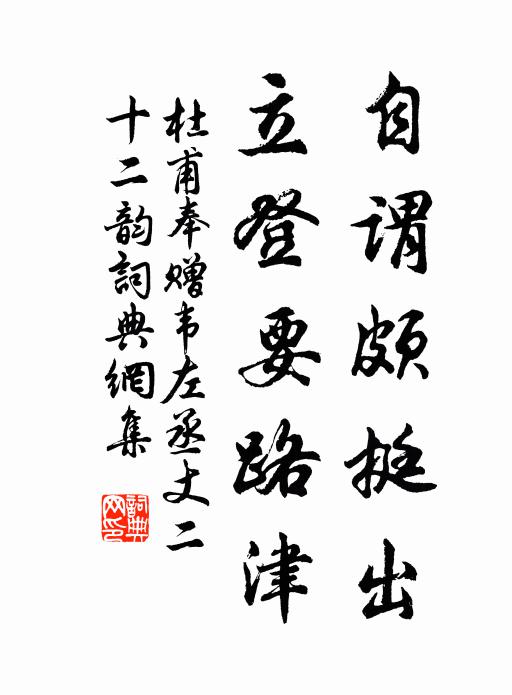 自谓颇挺出
立登要路津
杜甫奉赠韦左丞丈二
十二韵词典網集
詞典
网印